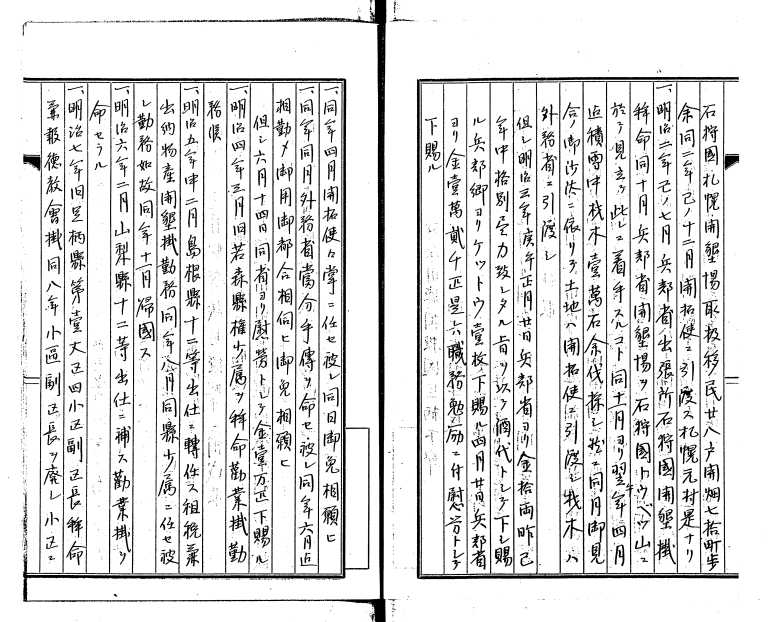 石狩國札幌開墾場取扱移民廿八戸開畑七拾町歩
余同二年己ノ十二月開拓使ニ引渡ス札幌元村是ナリ
一、明治二年己ノ七月兵部省出張所石狩國開墾掛
拜命同十月兵部省開墾場ヲ石狩國トウベツ山ニ
於テ見立ツ此レニ着手スルコト同十一月ヨリ翌年四月
迄積雪中伐木壹萬石余伐採シ然ニ同月御見
合ノ御沙汰ニ依リテ土地ハ開拓使江引渡シ伐木ハ
外務省ニ引渡シ
但シ明治三年庚午正月廿日兵部省ヨリ金拾両昨己
年中格別尽力致シタル旨ヲ以テ酒代トシテ下シ賜
ル兵部卿ヨリケットウ壹枚下賜ル四月廿日兵部省
ヨリ金壹萬貳千疋是ハ職務勉励ニ付慰労トシテ
下賜ル
一、同年四月開拓使々掌ニ任セ被レ同日御免相願ヒ
一、同年同月外務省當分手傳ヲ命セ被レ同年六月迄
相勤メ御用御都合相伺ヒ御免相願ヒ
但シ六月十四日同省ヨリ慰労トシテ金壹万疋下賜ル
一、明治四年三月旧若森縣権少属ヲ拜命勸業掛勤
務候
一、明治五年申二月島根縣十二等出仕ニ轉任ス租税兼
出納物産開墾掛勤務同年八月同縣少属ニ任セ被
レ勤務如故同年十一月帰國ス
一、明治六年二月山梨縣十二等出仕ニ補ス勸業掛ヲ
命セラル
一、明治七年旧足柄縣第壹大区四小区副区長拜命
兼報徳教會掛同八年小區副区長ヲ廃シ小区ニ